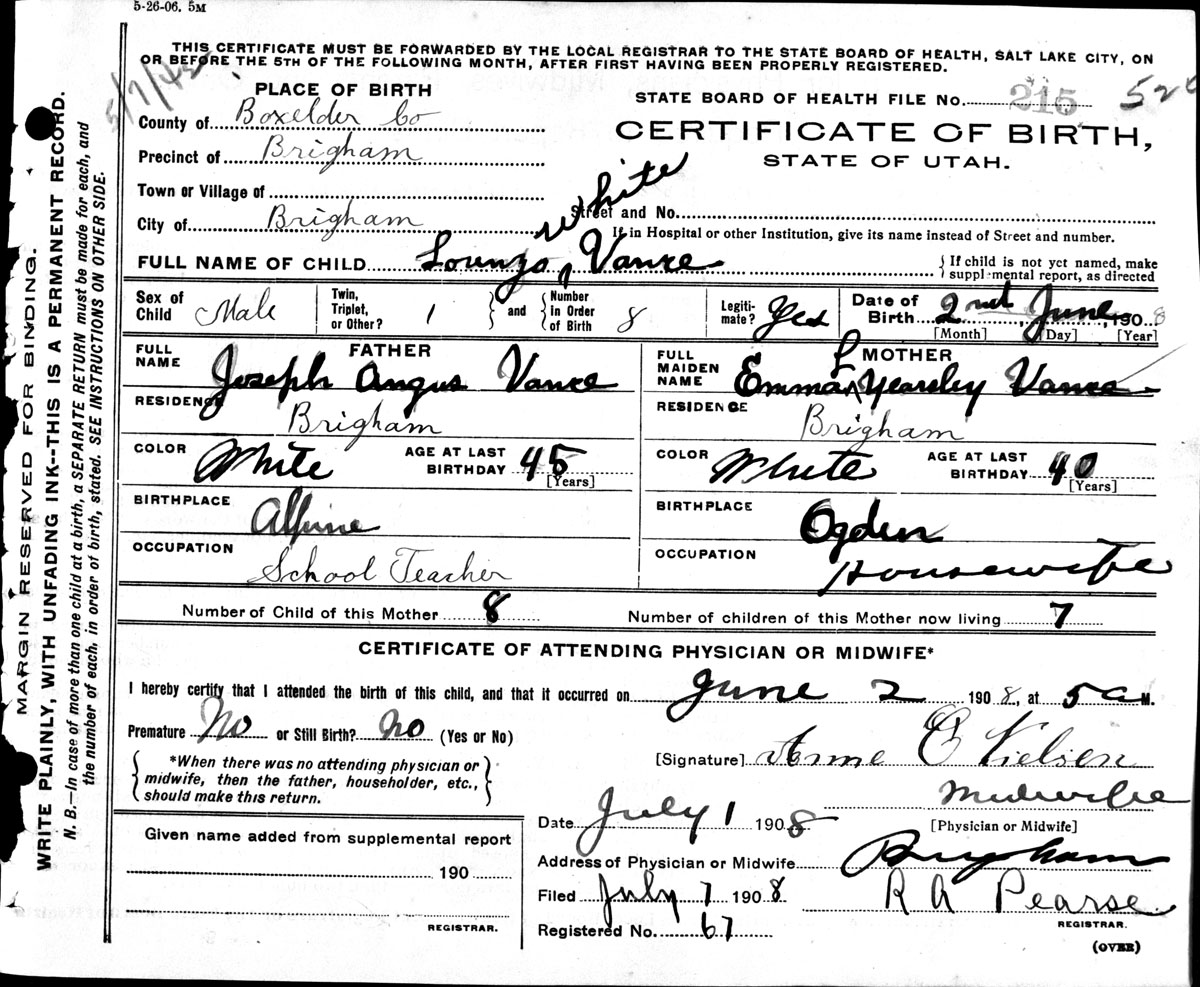 5-26-06. 5M
THIS CERTIFICATE MUST BE FORWARDED BY THE LOCAL REGISTRAR TO THE STATE BOARD OF HEALTH, SALT LAKE CITY, ON
OR BEFORE THE 5TH OF THE FOLLOWING MONTH, AFTER FIRST HAVING BEEN PROPERLY REGISTERED.
5/7/42
PLACE OF BIRTH
STATE BOARD OF HEALTH FILE No. 215
County of Boxelder Co
CERTIFICATE OF BIRTH,
STATE OF UTAH.
Precinct of Brigham
Town or Village of
City of Brigham
Street and No.
If in Hospital or other Institution, give its name instead of Street and number.
FULL NAME OF CHILD Lounzo White Vance
{ If child is not yet named, make
supplemental report, as directed
Sex of Child Male
Twin, Triplet, or Other? 1 } and { Number in Order of Birth 8
Legitimate? Yes
Date of Birth 2nd June, 1908
[Month] [Day] [Year]
FATHER
FULL NAME Joseph Angus Vance
RESIDENCE Brigham
COLOR White
AGE AT LAST BIRTHDAY 45 [Years]
BIRTHPLACE Alpine
OCCUPATION School Teacher
MOTHER
FULL MAIDEN NAME Emma L Yearsley Vance
RESIDENCE Brigham
COLOR White
AGE AT LAST BIRTHDAY 40 [Years]
BIRTHPLACE Ogden
OCCUPATION Housewife
Number of Child of this Mother 8
Number of children of this Mother now living 7
CERTIFICATE OF ATTENDING PHYSICIAN OR MIDWIFE*
I hereby certify that I attended the birth of this child, and that it occurred on June 2 1908, at 5 a M.
Premature No or Still Birth? No (Yes or No)
*When there was no attending physician or
midwife, then the father, householder, etc.,
should make this return.
[Signature] Anne E Nielsen
Midwife
[Physician or Midwife]
Date July 1 1908
Address of Physician or Midwife Brigham
Filed July 7 1908
R A Pearse
REGISTRAR.
Registered No. 67
(OVER)
Given name added from supplemental report
190
REGISTRAR.
MARGIN RESERVED FOR BINDING.
WRITE PLAINLY, WITH UNFADING INK--THIS IS A PERMANENT RECORD.
N. B.—In case of more than one child at a birth, a SEPARATE RETURN must be made for each, and
the number of each, in order of birth, stated. SEE INSTRUCTIONS ON OTHER SIDE.